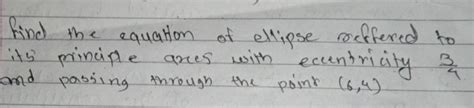 find the equation of ellipse reffered to
its principle axes with eccentricity 3/4
and passing through the point (6,4)